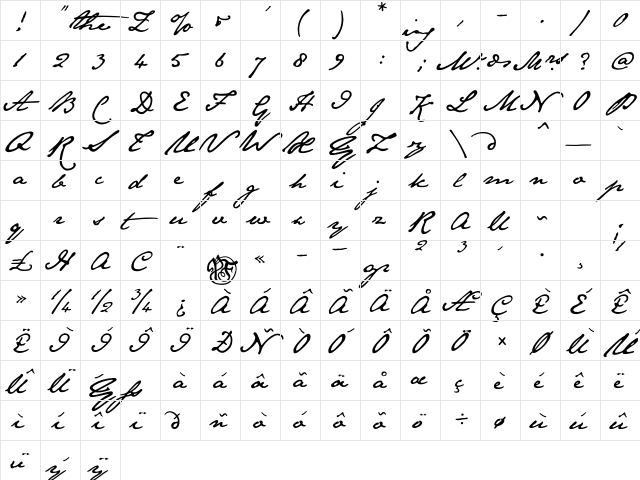 ! " the Z % & ' ( ) * ing , - . / 0
1 2 3 4 5 6 7 8 9 : ; Mr. ds Mrs. ? @
A B C D E F G H I J K L M N O P
Q R S T U V W X Y Z ry \ d ^ _ `
a b c d e f g h i j k l m n o p
q r s t u v w x y z R Q U ~ ¡
£ H A C ¨ PF « - ¯ gr 2 3 ´ · ¸
» 1/4 1/2 3/4 ¿ À Á Â Ã Ä Å Æ Ç È É Ê
Ë Ì Í Î Ï Ð Ñ Ò Ó Ô Õ Ö × Ø Ù Ú
Û Ü Ý fs à á â ã ä å æ ç è é ê ë
ì í î ï ð ñ ò ó ô õ ö ÷ ø ù ú û
ü ý ÿ